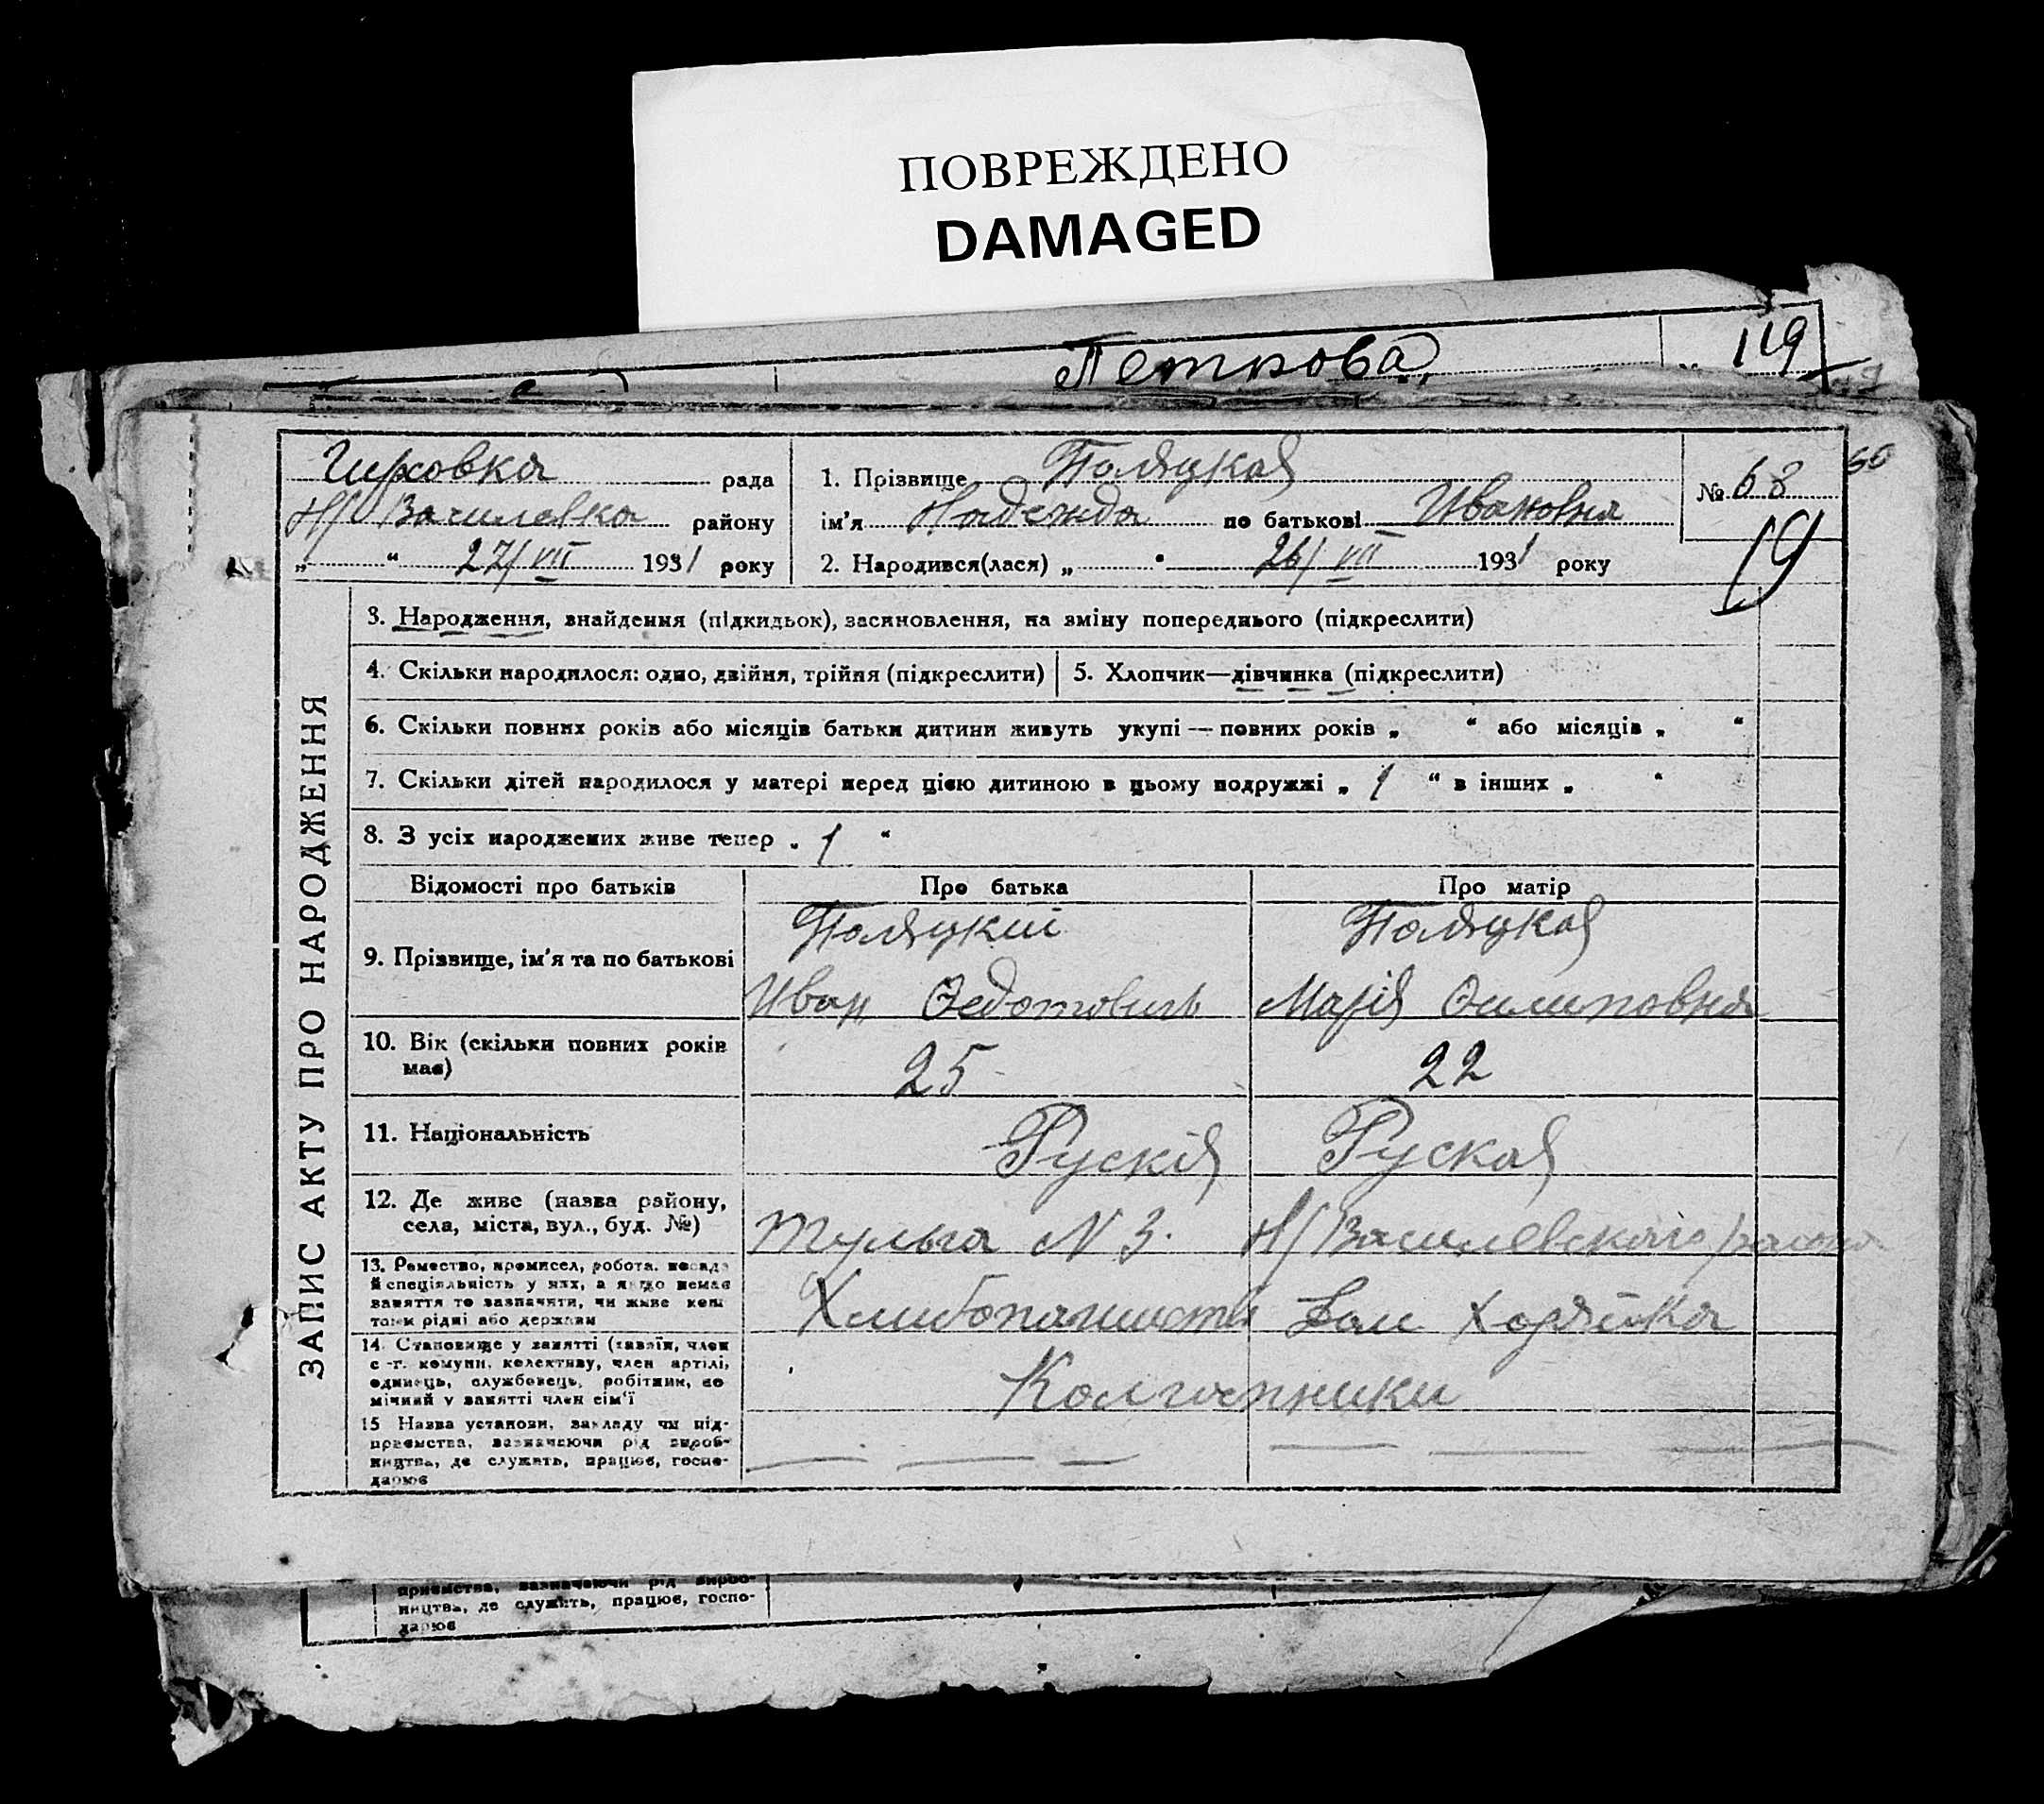 ПОВРЕЖДЕНО
DAMAGED
Петрова,
119
Гирсовка рада
Н/ Василевка району
„ “ 27/VII 1931 року
1. Прізвище Поляцкая
ім'я Надежда по батькові Ивановна
2. Народився(лася) „ “ 26/VII 1931 року
№ 68
19
ЗАПИС АКТУ ПРО НАРОДЖЕННЯ
3. Народження, знайдення (підкидьок), засиновлення, на зміну попереднього (підкреслити)
4. Скільки народилося: одно, двійня, трійня (підкреслити)
5. Хлопчик—дівчинка (підкреслити)
6. Скільки повних років або місяців батьки дитини живуть укупі — повних років „ “ або місяців „ “
7. Скільки дітей народилося у матері перед цією дитиною в цьому подружжі „ 1 “ в інших „ “
8. З усіх народжених живе тепер „ 1 “
Відомості про батьків Про батька Про матір
9. Прізвище, ім'я та по батькові
Поляцкий
Иван Федотовичь
Поляцкая
Марія Филиповна
10. Вік (скільки повних років
має)
25
22
11. Національність
Рускій
Руская
12. Де живе (назва району,
села, міста, вул., буд. №)
Тульга N 3. Н/Василевскаго района
13. Ремество, промисел, робота, посада
й спеціяльність у них, а якщо немає
заняття то зазначити, чи живе кош
том рідні або держави
Дом Хозяйка
14. Становище у занятті (хазяїн, член
с.-г. комуни, колективу, член артілі,
одинець, службовець, робітник, по
мічний у занятті член сім'ї
15 Назва установи, закладу чи під-
приємства, зазначаючи рід вироб-
ництва, де служить, працює, госпо-
дарює
приємства, зазначаючи рід вироб-
ництва, де служить, працює, госпо-
дарює